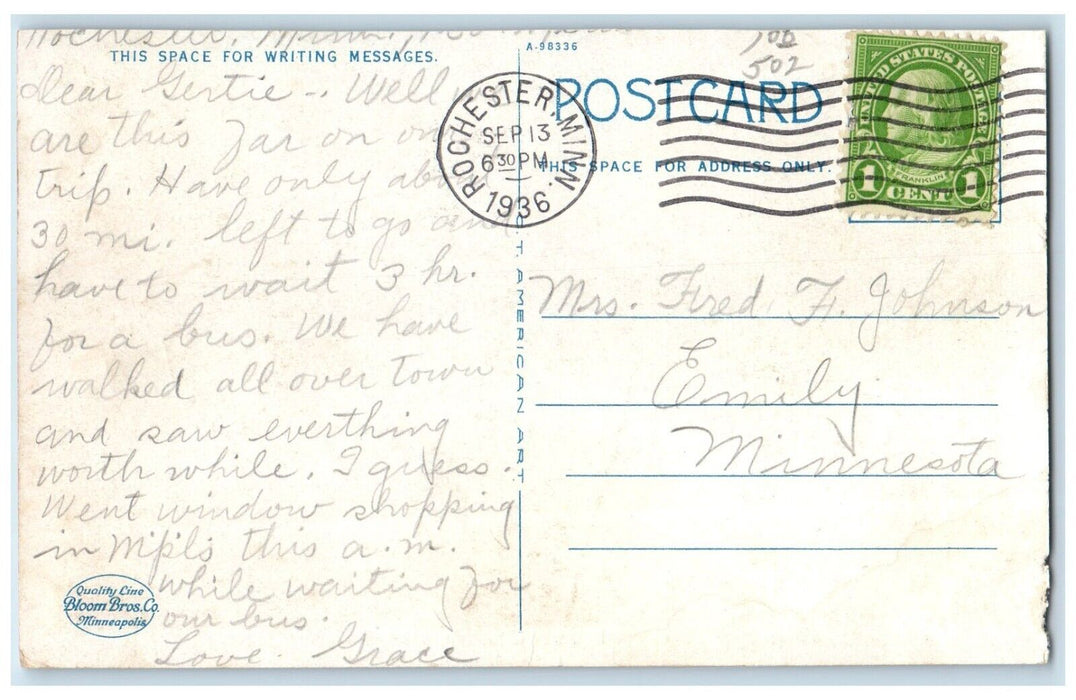 Rochester, Minn.,
THIS SPACE FOR WRITING MESSAGES.
Dear Gertie -. Well
are this far on
trip. Have only
30 mi. left to go
have to wait 3 hr.
for a bus. We have
walked all over town
and saw everthing
worth while. I guess.
Went window shopping
in Mpls this a.m.
while waiting for
our bus.
Love. Grace
Quality Line
Bloom Bros. Co.
Minneapolis
C.T. AMERICAN ART
A-98336
502
POSTCARD
THIS SPACE FOR ADDRESS ONLY.
ROCHESTER, MINN.
SEP 13
6 30 PM
1936
UNITED STATES POSTAGE
FRANKLIN
1 CENT 1
Mrs. Fred F. Johnson
Emily
Minnesota